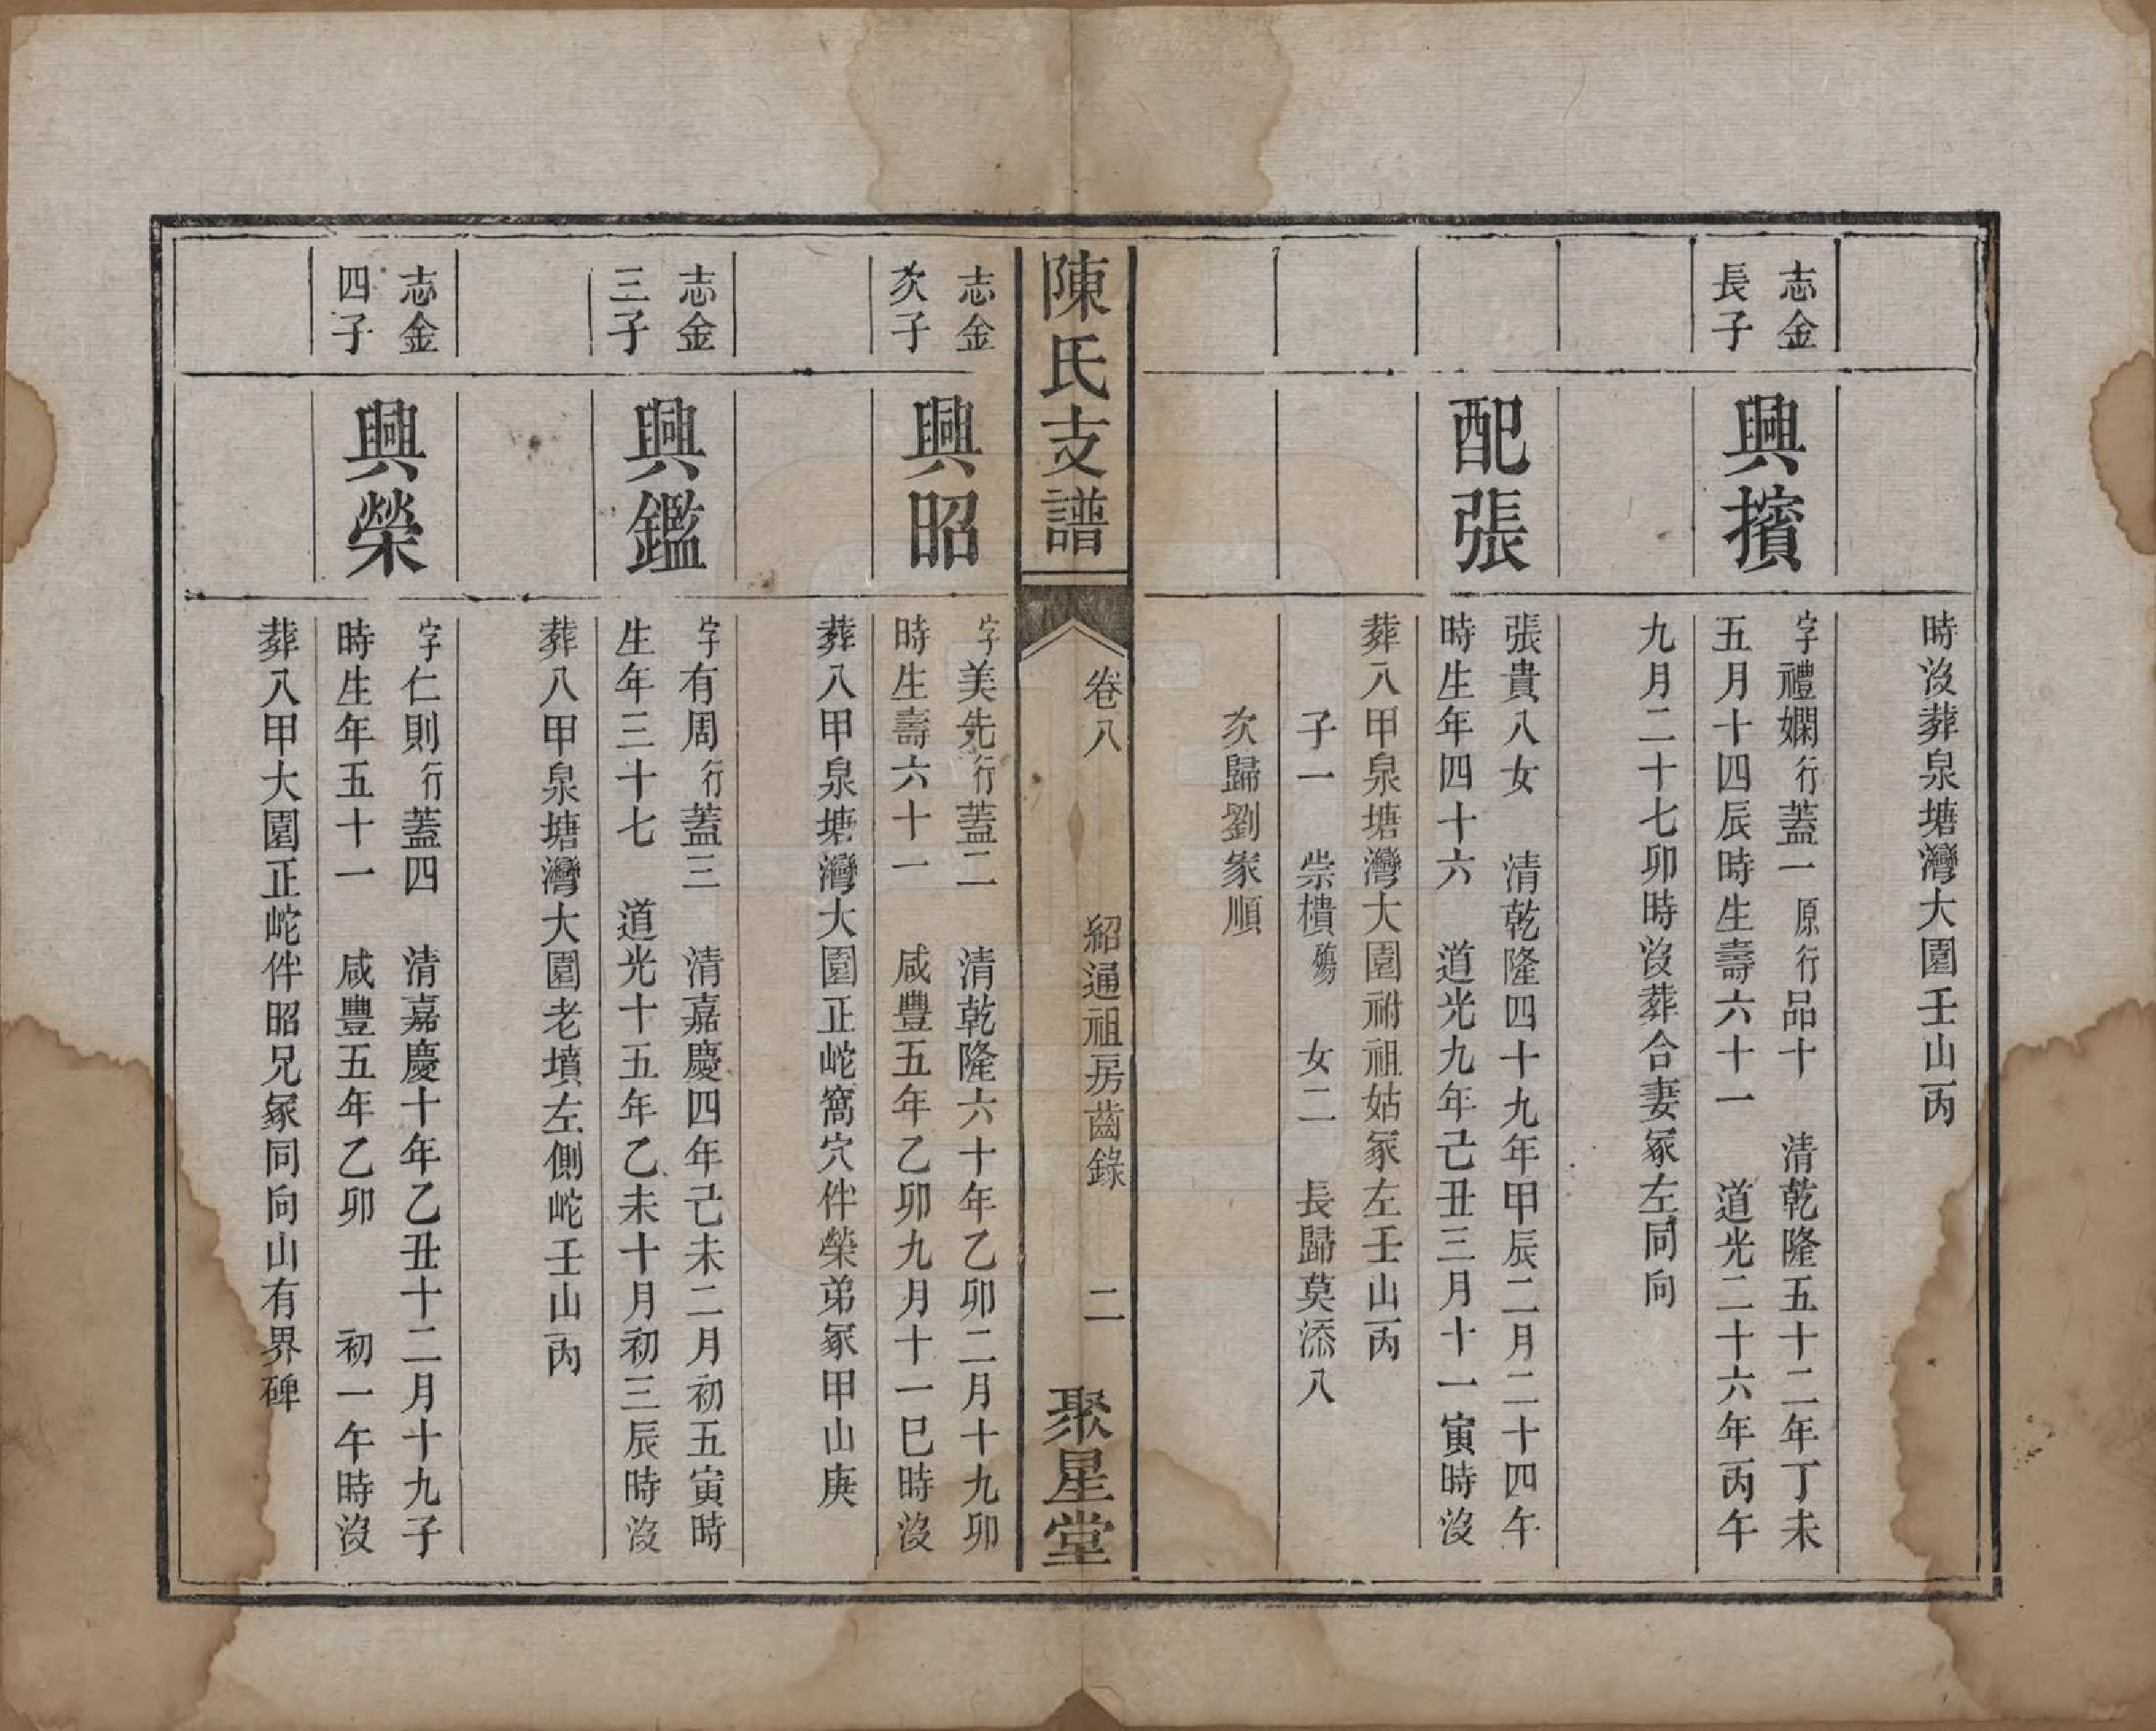 時沒葬泉塘灣大園壬山丙
志金
長子
興擯
字禮嫻行蓋一原行品十　清乾隆五十二年丁未
五月十四辰時生壽六十一　道光二十六年丙午
九月二十七卯時沒葬合妻冢左同向
配張
張貴八女　清乾隆四十九年甲辰二月二十四午
時生年四十六　道光九年己丑三月十一寅時沒
葬八甲泉塘灣大園祔祖姑冢左壬山丙
子一　崇樻殤　女二　長歸莫添八
次歸劉家順
陳氏支譜
卷八
紹通祖房齒錄
二
聚星堂
志金
次子
興昭
字美先行蓋二　清乾隆六十年乙卯二月十九卯
時生壽六十一　咸豐五年乙卯九月十一巳時沒
葬八甲泉塘灣大園正屹窩穴伴榮弟冢甲山庚
志金
三子
興鑑
字有周行蓋三　清嘉慶四年己未二月初五寅時
生年三十七　道光十五年乙未十月初三辰時沒
葬八甲泉塘灣大園老墳左側屹壬山丙
志金
四子
興榮
字仁則行蓋四　清嘉慶十年乙丑十二月十九子
時生年五十一　咸豐五年乙卯　　初一午時沒
葬八甲大園正屹伴昭兄冢同向山有界碑